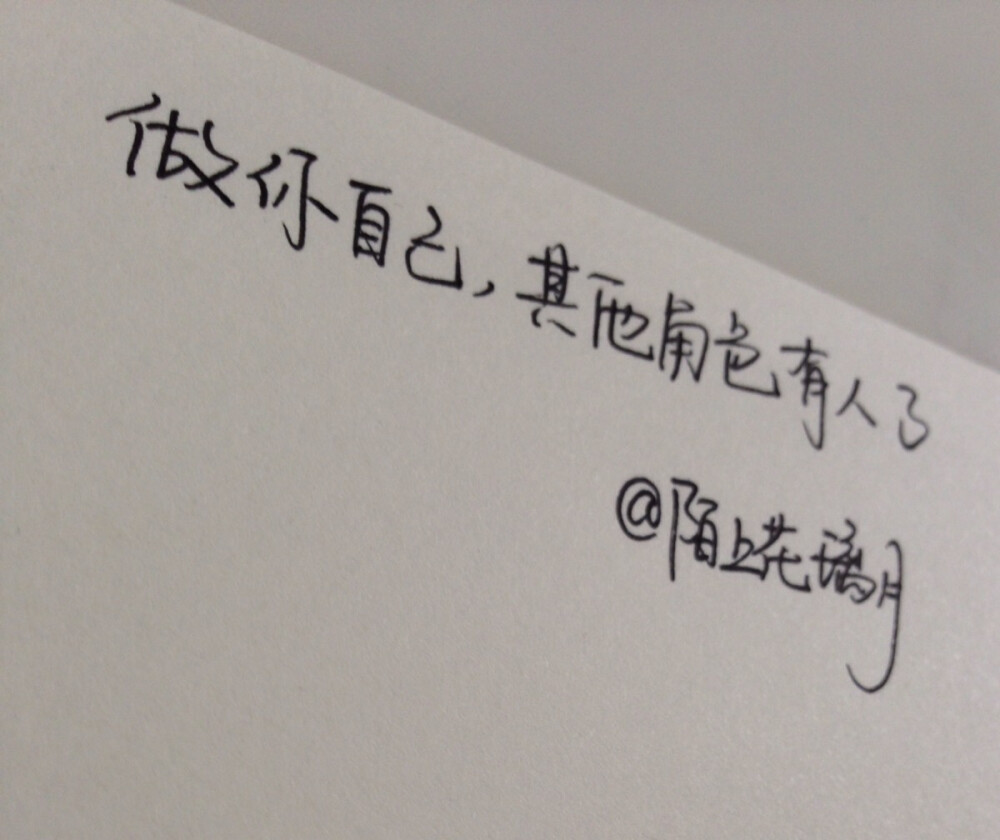 做你自己,其他角色有人了
@陌上花璃月